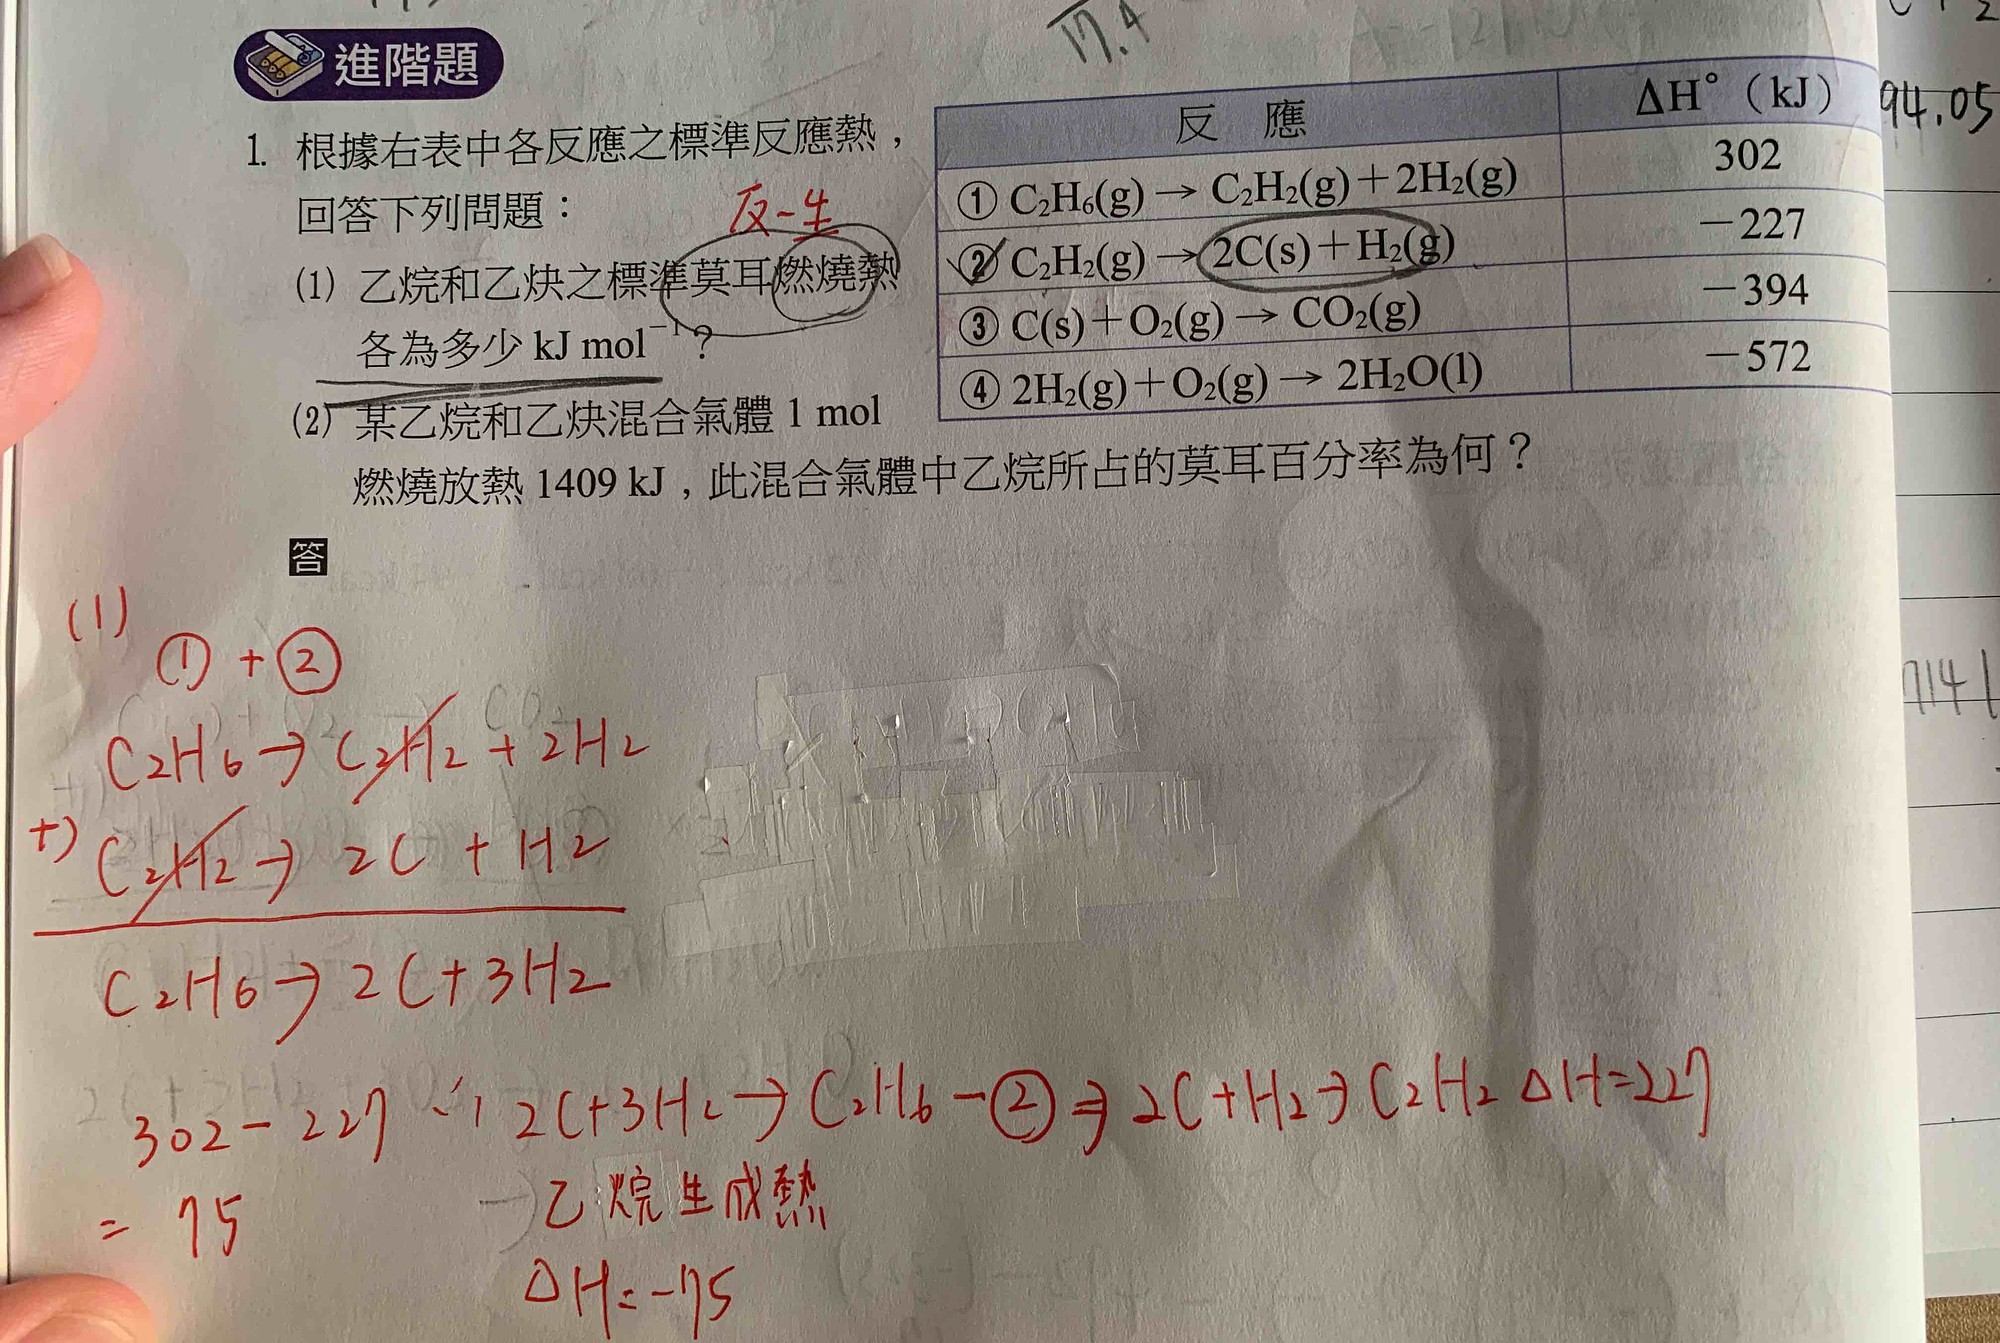 17.4
進階題
1. 根據右表中各反應之標準反應熱，
回答下列問題：
反-生
(1) 乙烷和乙炔之標準莫耳燃燒熱
各為多少 kJ mol⁻¹？
(2) 某乙烷和乙炔混合氣體 1 mol
燃燒放熱 1409 kJ，此混合氣體中乙烷所占的莫耳百分率為何？
反 應 ΔH°（kJ）
① C₂H₆(g) → C₂H₂(g)＋2H₂(g) 302
② C₂H₂(g) → 2C(s)＋H₂(g) －227
③ C(s)＋O₂(g) → CO₂(g) －394
④ 2H₂(g)＋O₂(g) → 2H₂O(l) －572
94.05
7141
答
(1)
① + ②
C₂H₆ → C₂H₂ + 2H₂
+) C₂H₂ → 2C + H₂
C₂H₆ → 2C + 3H₂
302 - 227
= 75
2C + 3H₂ → C₂H₆ - ② ⇒ 2C + H₂ → C₂H₂ ΔH = 227
乙烷生成熱
ΔH = -75